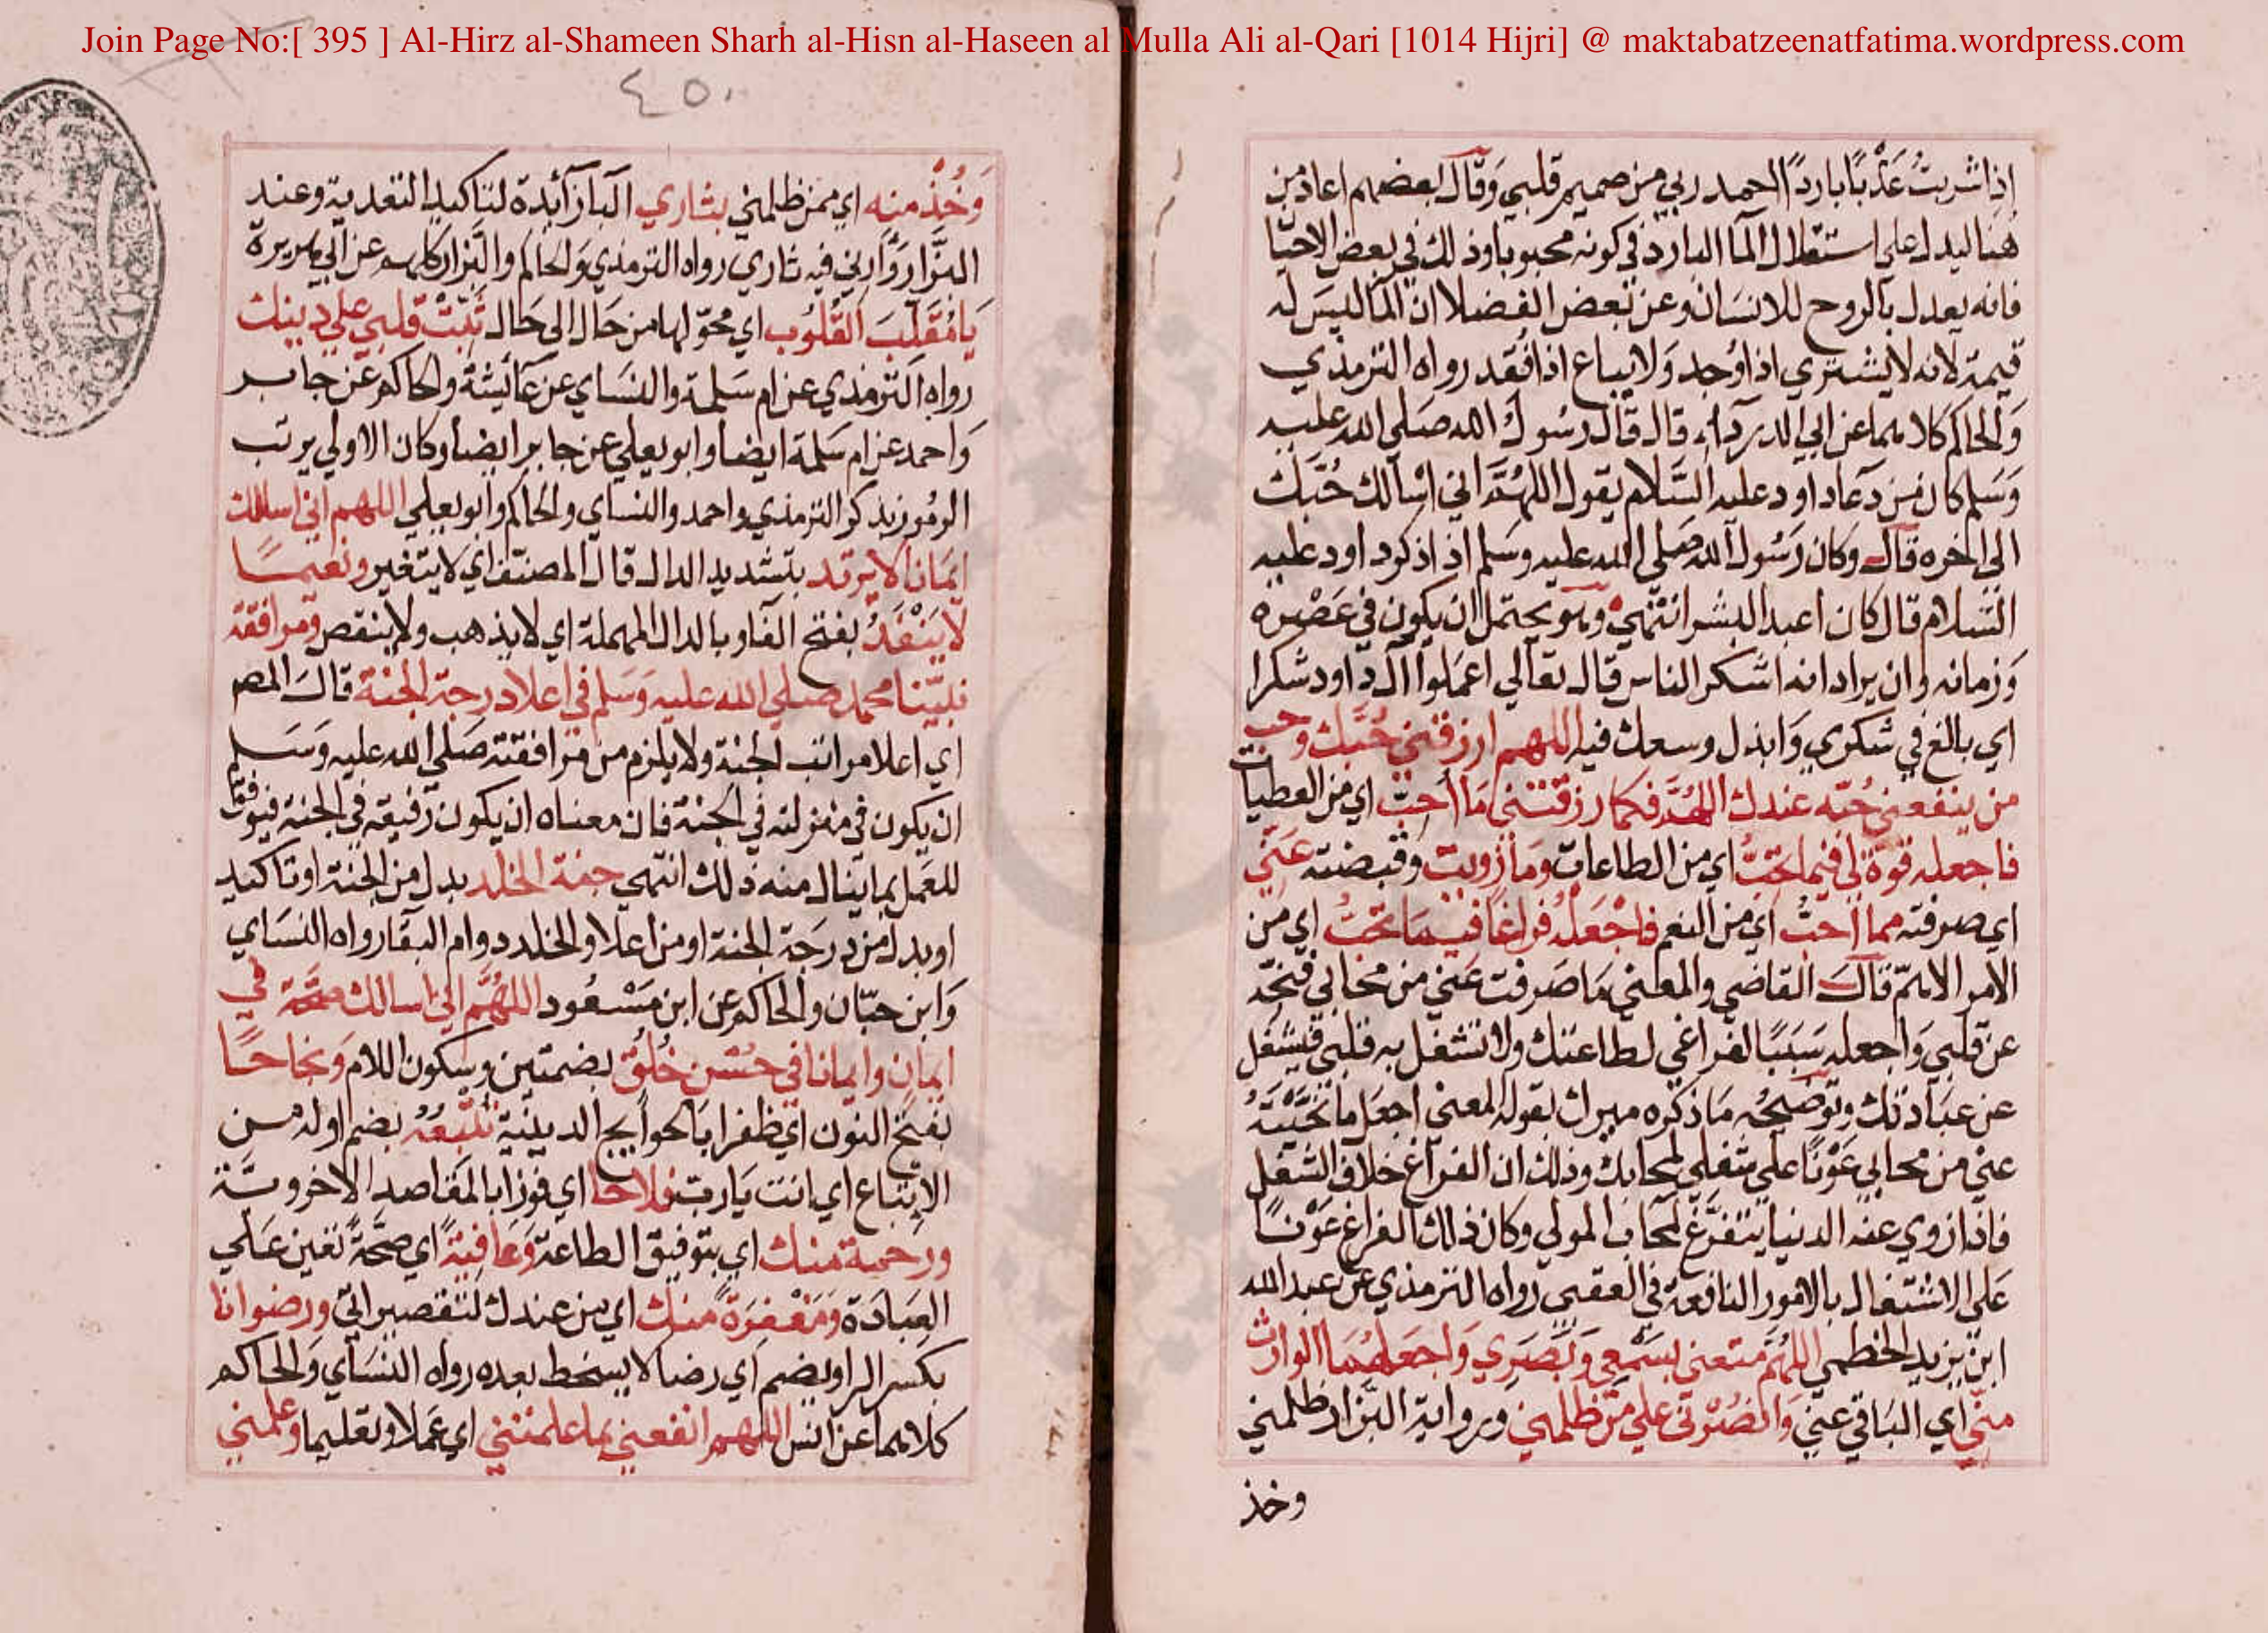 Join Page No:[ 395 ] Al-Hirz al-Shameen Sharh al-Hisn al-Haseen al Mulla Ali al-Qari [1014 Hijri] @ maktabatzeenatfatima.wordpress.com
اذا شربتُ عَذْبًا باردًا الحمد ربي من صميم قلبي وقال بعضهم اعاد من
هنا ليدل على استقلال الما البارد في كونه محبوبا وذلك في بعض الاحيا
فانه يعدل بالروح للانسان وعن بعض الفضلا ان الما ليس له
قيمة لانه لا يشتري اذا وُجد ولا يباع اذا فُقد رواه الترمذي
والحاكم كلاهما عن ابي الدرداء قال قال رسول الله صلي الله عليه
وسلم كان من دعا داود عليه السلام يقول اللهم اني اسالك حُبَّك
الى اخره قال وكان رسول الله صلي الله عليه وسلم اذا ذكر داود عليه
السلام قال كان اعبد البشر انتهي وهو يحتمل ان يكون في عَصْره
وزمانه وان يراد انه اشكر الناس قال تعالي اعملوا آل داود شكرا
اي بالغ في شكري وابذل وسعك فيه اللهم ارزقني حُبَّك وحب
من ينفعني حُبّه عندك اللهم فكما رزقتني ما أحبّ اي من العطيات
فاجعله قوة لي فيما تحبُّ اي من الطاعات وما زويت وقبضته عني
اي صرفته مما أحبُّ اي من النعم فاجْعَلْه فراغا فيما تحبُّ اي من
الامر الاهمّ قال القاضي والمعني ما صرفت عني من محابي فنحّه
عن قلبي واجعله سببًا لفراغي لطاعتك ولا تشغل به قلبي فيشغل
عن عبادتك وتوضيحُه ما ذكره ميرك بقوله المعني اجعل ما نحّيتهُ
عني من محابي عَوْنًا علي شغلي بمحابك وذلك ان الفراغ خلاف الشغل
فاذا زوي عنه الدنيا يتفرّغ لمحاب المولي وكان ذلك الفراغ عَوْنًا
على الاشتغال بالامور النافعة في العقبي رواه الترمذي عن عبد الله
ابن يزيد الخطمي اللهم متعني بسَمْعي وبَصَري واجعلهُما الوارث
منّي اي الباقي عني وانصُرْني علي من ظلمني وبرواية البزار ظلمني
وخذ
٤٥٠
وَخُذْ منه اي ممن ظلمني بثاري البا زآئدة لتاكيد التعدية وعند
البزار وَأرِني فيه ثاري رواه الترمذي والحاكم والبزار كلهم عن ابي هريرة
يا مُقَلّبَ القُلُوب اي محوّلها من حال الى حال ثَبّتْ قلبي على دينك
رواه الترمذي عن ام سلمة والنساي عن عآئشة والحاكم عن جابر
واحمد عن ام سلمة ايضا وابو يعلي عن جابر ايضا وكان الاولي يرتب
الرموز بذكر الترمذي واحمد والنساي والحاكم وابو يعلي اللهم اني اسالك
ايمانا لا يرتد بتشديد الدال قال المصنف اي لا يتغير ونعيمًا
لا يَنْفَدُ بفتح الفا وبالدال المهملة اي لا يذهب ولا ينقص ومرافقة
نبيّنا محمد صلي الله عليه وسلم في اعلا درجة الجنة قال المصـ
اي اعلا مراتب الجنة ولا يلزم من مرافقته صلي الله عليه وسلم
ان يكون في منزلته في الجنة فان معناه ان يكون رفيقه في الجنة فيوفقا
للعمل بما ينال منه ذلك انتهي جنة الخلد بدل من الجنة او تاكيد
او بدل من درجة الجنة او من اعلا والخلد دوام البقا رواه النساي
وابن حبّان والحاكم عن ابن مسعود اللهم اني اسالك صحّة في
ايمان وايمانا في حُسْن خُلُق بضمتين وسكون اللام ونجاحًا
بفتح النون اي ظفرا بالحوايج الدينية تُتْبعُه بضم اوله من
الإتباع اي انت يا رب فلاحا اي فوزا بالمقاصد الاخروية
ورحمة منك اي بتوفيق الطاعة وعافيةً اي صحّةً تعين علي
العبادة ومَغْفرةً منك اي من عندك لتقصيراتي ورضوانا
بكسر الرا وبضم اي رضا لا يسخط بعده رواه النساي والحاكم
كلاهما عن انس اللهم انفعني بما علمتني اي عملا وتعليما وعلمني